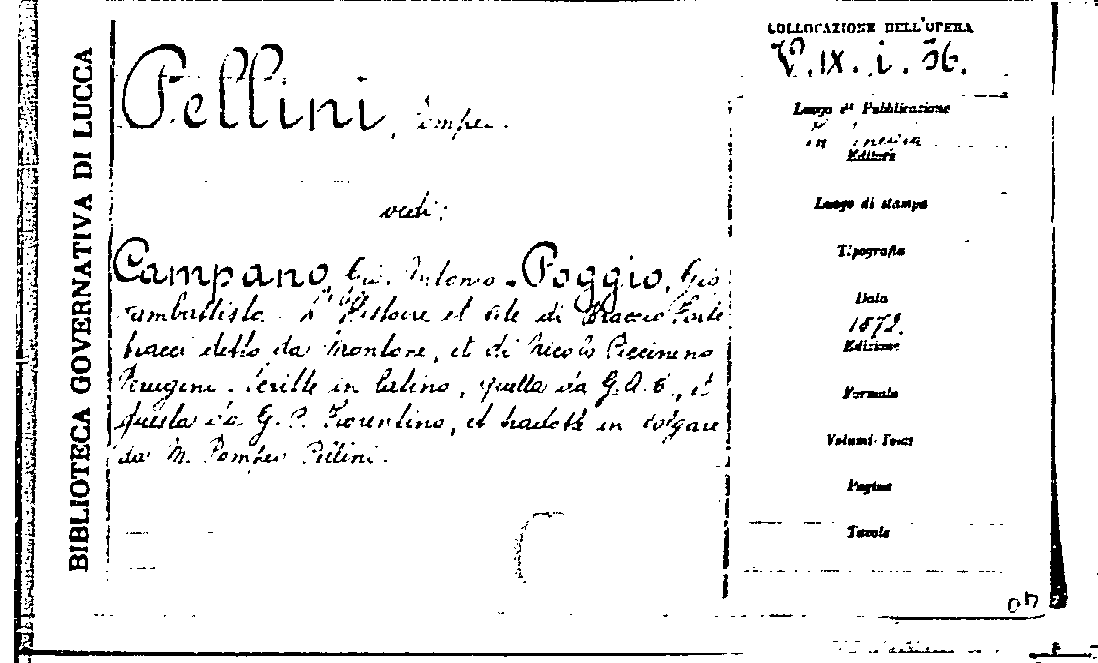 BIBLIOTECA GOVERNATIVA DI LUCCA
Pellini, Pompeo.
vedi:
Campano, Gio. Antonio - Poggio, Gio
vambattista. L'Histoire et vite di Braccio Forte
bracci detto da Montone, et di Nicolo Piccinino
Perugini. Scritte in latino, quella da G. A. C., et
questa da G. P. Fiorentino, et tradotte in volgare
da M. Pompeo Pellini.
COLLOCAZIONE DELL'OPERA
V. IX. i. 36.
Luogo di Pubblicazione
In Venetia
Editore
Luogo di stampa
Tipografia
Data
1572.
Edizione
Formato
Volumi-Tomi
Pagine
Tavole